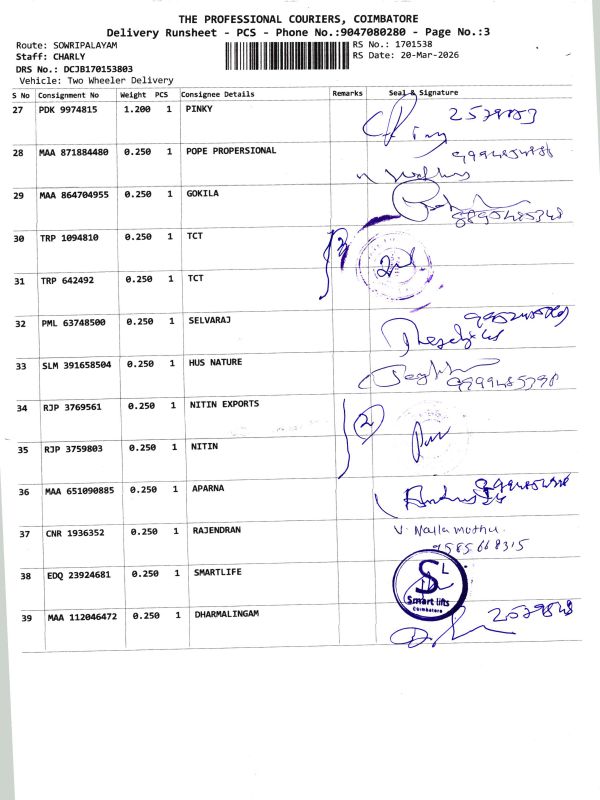 THE PROFESSIONAL COURIERS, COIMBATORE
Delivery Runsheet - PCS - Phone No.:9047080280 - Page No.:3
Route: SOWRIPALAYAM RS No.: 1701538
Staff: CHARLY RS Date: 20-Mar-2026
DRS No.: DCJB170153803
Vehicle: Two Wheeler Delivery
S No Consignment No Weight PCS Consignee Details Remarks Seal & Signature
27 PDK 9974815 1.200 1 PINKY
28 MAA 871884480 0.250 1 POPE PROPERSIONAL
29 MAA 864704955 0.250 1 GOKILA
30 TRP 1094810 0.250 1 TCT
31 TRP 642492 0.250 1 TCT
32 PML 63748500 0.250 1 SELVARAJ
33 SLM 391658504 0.250 1 HUS NATURE
34 RJP 3769561 0.250 1 NITIN EXPORTS
2
35 RJP 3759803 0.250 1 NITIN
36 MAA 651090885 0.250 1 APARNA
37 CNR 1936352 0.250 1 RAJENDRAN V. Nallamuthu
9585668315
38 EDQ 23924681 0.250 1 SMARTLIFE
SL
Smart lifts
Coimbatore
39 MAA 112046472 0.250 1 DHARMALINGAM